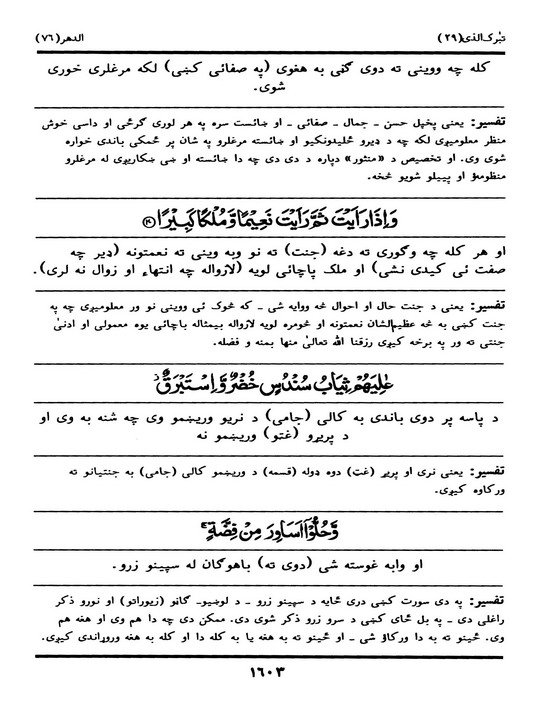 تبٰرک الذی (٢٩)
الدهر (٧٦)
کله چه ووینی ته دوی ګڼی به هغوی (په صفائی کښی) لکه مرغلری خوری
شوی.
تفسیر: یعنی پخپل حسن ـ جمال ـ صفائی ـ او ښائست سره په هر لوری ګرځی او داسی خوش
منظر معلومیږی لکه چه د ډیرو ځلیدونکیو او ښائسته مرغلرو په شان پر ځمکی باندی خواره
شوی وی. او تخصیص د «منثور» دپاره د دی دی چه دا ښائسته او ښی ښکاریږی له مرغلرو
منظومؤ او پییلو شویو څخه.
وَاِذَا رَاَيْتَ ثَمَّ رَاَيْتَ نَعِيْمًا وَّمُلْكًا كَبِيْرًا ﴿٢٠﴾
او هر کله چه وګوری ته دغه (جنت) ته نو وبه وینی ته نعمتونه (ډیر چه
صفت ئی کیدی نشی) او ملک پاچائی لویه (لازواله چه انتهاء او زوال نه لری).
تفسیر: یعنی د جنت حال او احوال څه ووایه شی ـ که څوک ئی ووینی نو ور معلومیږی چه په
جنت کښی به څه عظیم‌الشان نعمتونه او څومره لویه لازواله بیمثاله باچائی یوه معمولی او ادنیٰ
جنتی ته ور په برخه کیږی رزقنا الله تعالیٰ منها بمنه و فضله.
عٰلِيَهُمْ ثِيَابُ سُنْدُسٍ خُضْرٌ وَّاِسْتَبْرَقٌ
د پاسه پر دوی باندی به کالی (جامی) د نریو وریښمو وی چه شنه به وی او
د پریړو (غټو) وریښمو نه
تفسیر: یعنی نری او پریړ (غټ) دوه ډوله (قسمه) د وریښمو کالی (جامی) به جنتیانو ته
ورکاوه کیږی.
وَّحُلُّوْٓا اَسَاوِرَ مِنْ فِضَّةٍ
او وابه غوسته شی (دوی ته) باهوګان له سپینو زرو.
تفسیر: په دی سورت کښی دری ځایه د سپینو زرو ـ د لوښیو- ګاڼو (زیوراتو) او نورو ذکر
راغلی دی ـ په بل ځای کښی د سرو زرو ذکر شوی دی. ممکن دی چه دا هم وی او هغه هم
وی. ځینو ته به دا ورکاؤ شی ـ او ځینو ته به هغه یا به کله دا او کله به هغه وروړاندی کیږی.
١٦٠٣